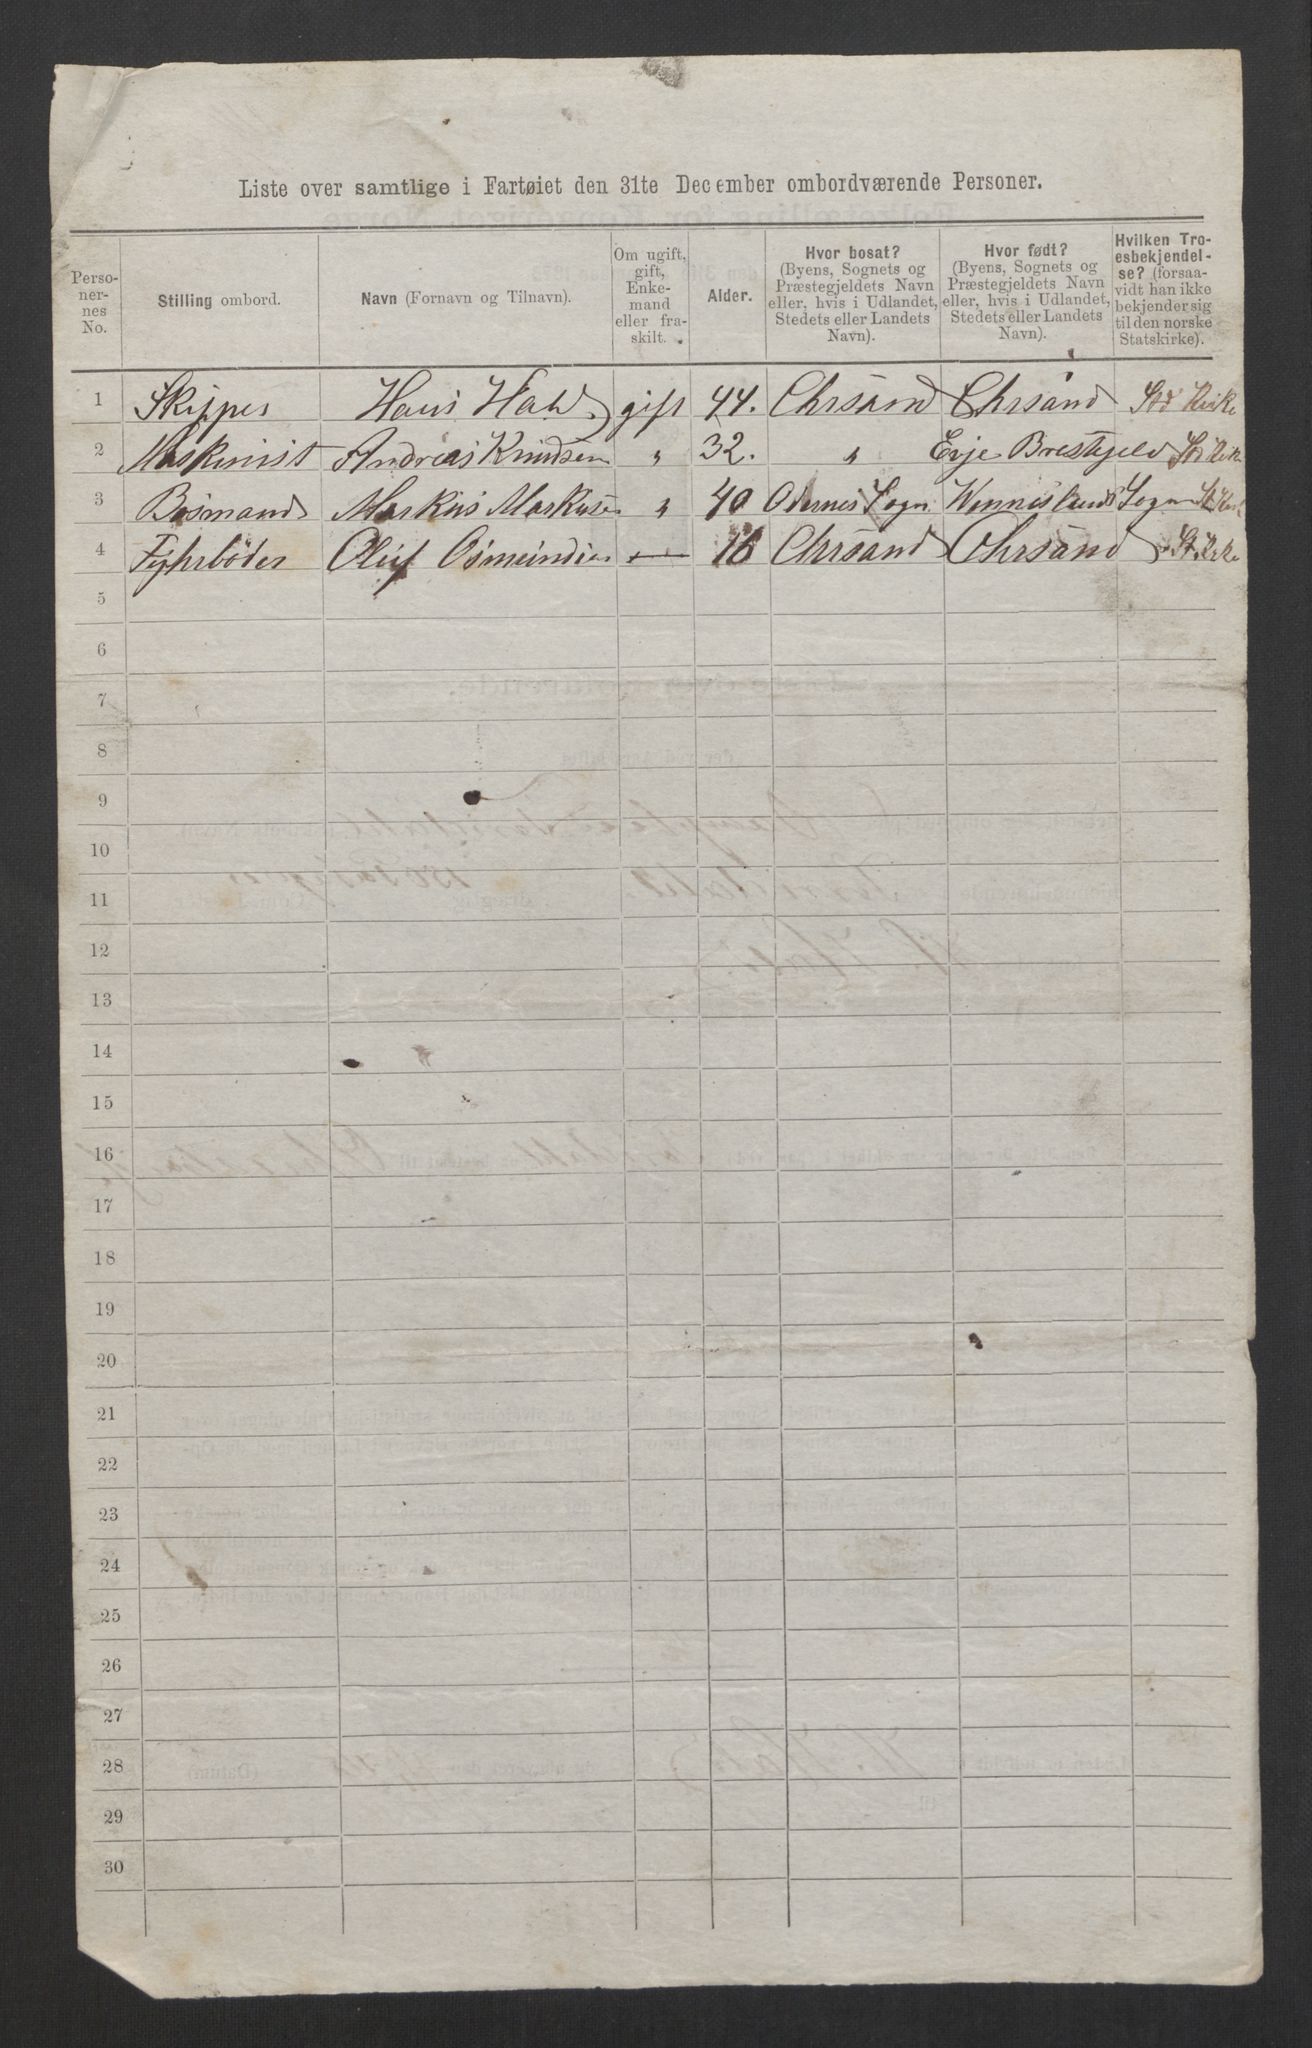 Liste over samtlige i Fartøiet den 31te December ombordværende Personer.
Perso-
ner-
nes
No.
Stilling ombord.
Navn (Fornavn og Tilnavn).
Om ugift,
gift,
Enke-
mand
eller fra-
skilt.
Alder.
Hvor bosat?
(Byens, Sognets og
Præstegjeldets Navn
eller, hvis i Udlandet,
Stedets eller Landets
Navn).
Hvor født?
(Byens, Sognets og
Præstegjeldets Navn
eller, hvis i Udlandet,
Stedets eller Landets
Navn).
Hvilken Tro-
esbekjendel-
se? (forsaa-
vidt han ikke
bekjender sig
til den norske
Statskirke).
1 Skipper Hans gift 44. Chrsand Chrsand Kirke
2 Maskinist Andreas Knudsen " 32. " Brestgjeld
3 Bosmand Markus " 40 Odernes Sogn Sogn
4 Fyhrböder Oluf — 16 Chrsand Chrsand
5
6
7
8
9
10
11
12
13
14
15
16
17
18
19
20
21
22
23
24
25
26
27
28
29
30